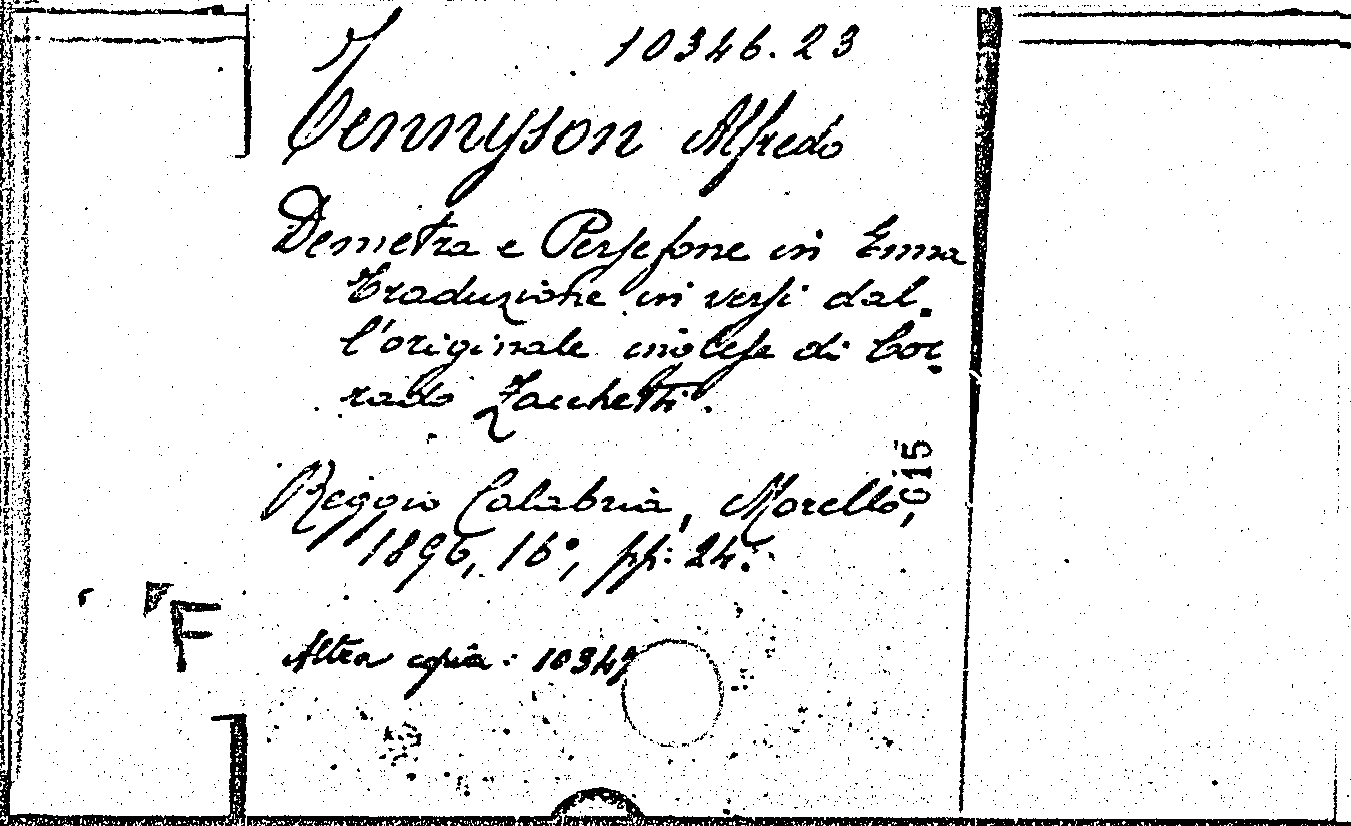 10346.23
Tennyson Alfredo
Demetra e Persefone in Enna
Traduzione in versi dal-
l'originale inglese di Cor-
rado Zacchetti.
Reggio Calabria, Morello,
1896, 16°, pp. 24.
015
F
Altra copia: 10347